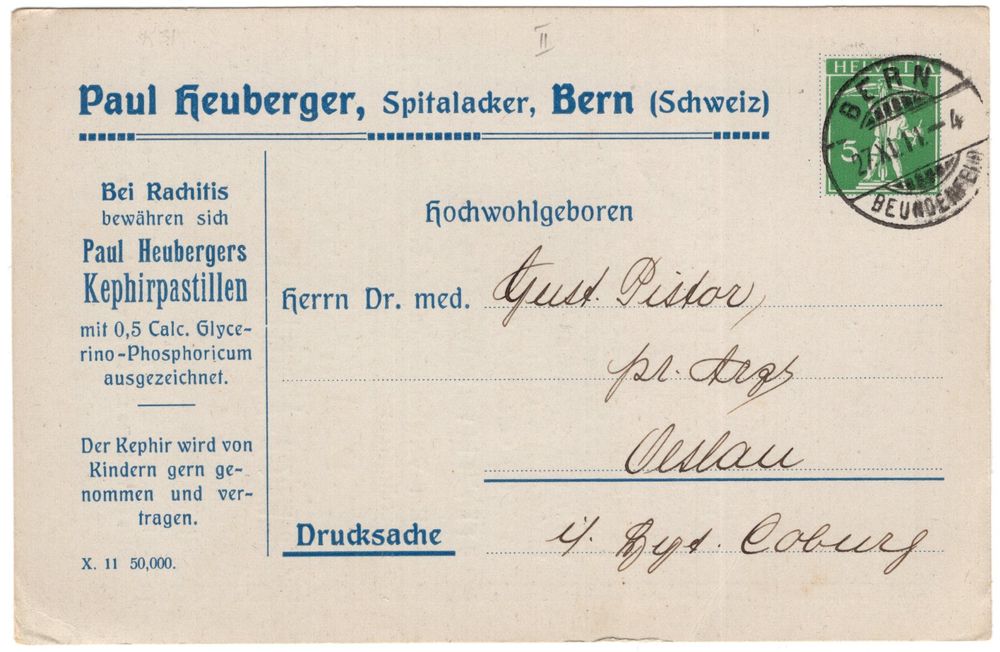 II
Paul Heuberger, Spitalacker, Bern (Schweiz)
HELVETIA
5
BERN
27.XI.11.-4
BEUNDENFELD
Bei Rachitis
bewähren sich
Paul Heubergers
Kephirpastillen
mit 0,5 Calc. Glyce-
rino-Phosphoricum
ausgezeichnet.
Der Kephir wird von
Kindern gern ge-
nommen und ver-
tragen.
X. 11 50,000.
Hochwohlgeboren
Herrn Dr. med. Gust. Pistor,
pr. Arzt
Oeslau
Drucksache
i/ Hzgt. Coburg